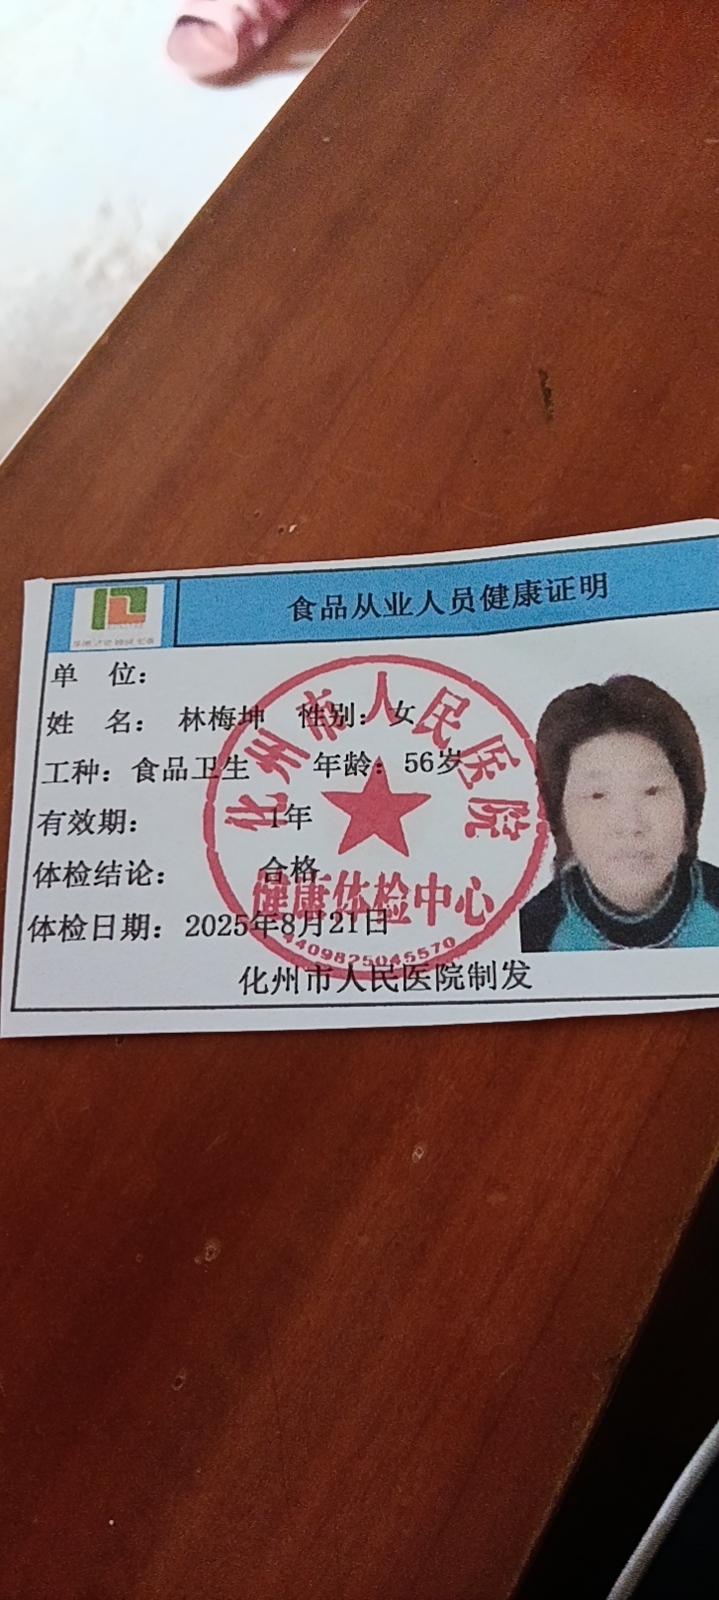 食品从业人员健康证明
单 位：
姓 名： 林梅坤 性别：女
工种：食品卫生 年龄：56岁
有效期： 1年
体检结论： 合格
体检日期：2025年8月21日
化州市人民医院制发
化州市人民医院
健康体检中心
4409825045570